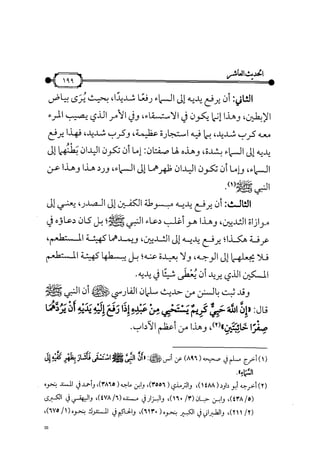 الحديث العاشر
١٩٩
الثاني: أن يرفع يديه إلى السماء رفعًا شديدًا، بحيث يُرَى بياض
الإبطين، وهذا إنما يكون في الاستسقاء، وفي الأمر الذي يصيب المرء
معه كرب شديد، بما فيه استجارة عظيمة، وكرب شديد، فهذا يرفع
يديه إلى السماء بشدة، وهذه لها صفتان: إما أن تكون اليدان بَطْنُهما إلى
السماء، وإما أن تكون اليدان ظهرهما إلى السماء، ورد هذا وهذا عن
النبي ﷺ(١).
الثالث: أن يرفع يديه مبسوطة الكفين إلى الصدر، يعني إلى
موازاة الثديين، وهذا هو أغلب دعاء النبي ﷺ؛ بل كان دعاؤه في
عرفة هكذا؛ يرفع يديه إلى الثديين، ويمدهما كهيئة المستطعم،
فلا يجعلهما إلى الوجه، ولا بعيدة عنه؛ بل يبسطها كهيئة المستطعم
المسكين الذي يريد أن يُعطَى شيئًا في يديه.
وقد ثبت بالسنن من حديث سلمان الفارسي ﷺ أن النبي ﷺ
قال: «إِنَّ اللهَ حَيِيٌّ كَرِيمٌ يَسْتَحْيِي مِنْ عَبْدِهِ إِذَا رَفَعَ إِلَيْهِ يَدَيْهِ أَنْ يَرُدَّهُمَا
صِفْرًا خَائِبَتَيْنِ»(٢)، وهذا من أعظم الآداب.
(١) أخرج مسلم في صحيحه (٨٩٦) عن أنس ﷺ: «أَنَّ النَّبِيَّ ﷺ اسْتَسْقَى فَأَشَارَ بِظَهْرِ كَفَّيْهِ إِلَى
السَّمَاءِ».
(٢) أخرجه أبو داود (١٤٨٨)، والترمذي (٣٥٥٦)، وابن ماجه (٣٨٦٥)، وأحمد في المسند بنحوه
(٥/ ٤٣٨)، وابن حبان (٣/ ١٦٠)، والبزار في مسنده (٦/ ٤٧٨)، والبيهقي في الكبرى
(٢/ ٢١١)، والطبراني في الكبير بنحوه (٦١٣٠)، والحاكم في المستدرك بنحوه (١/ ٦٧٥)،